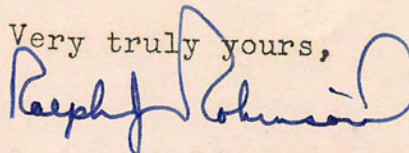 Very truly yours,
Ralph J Robinson